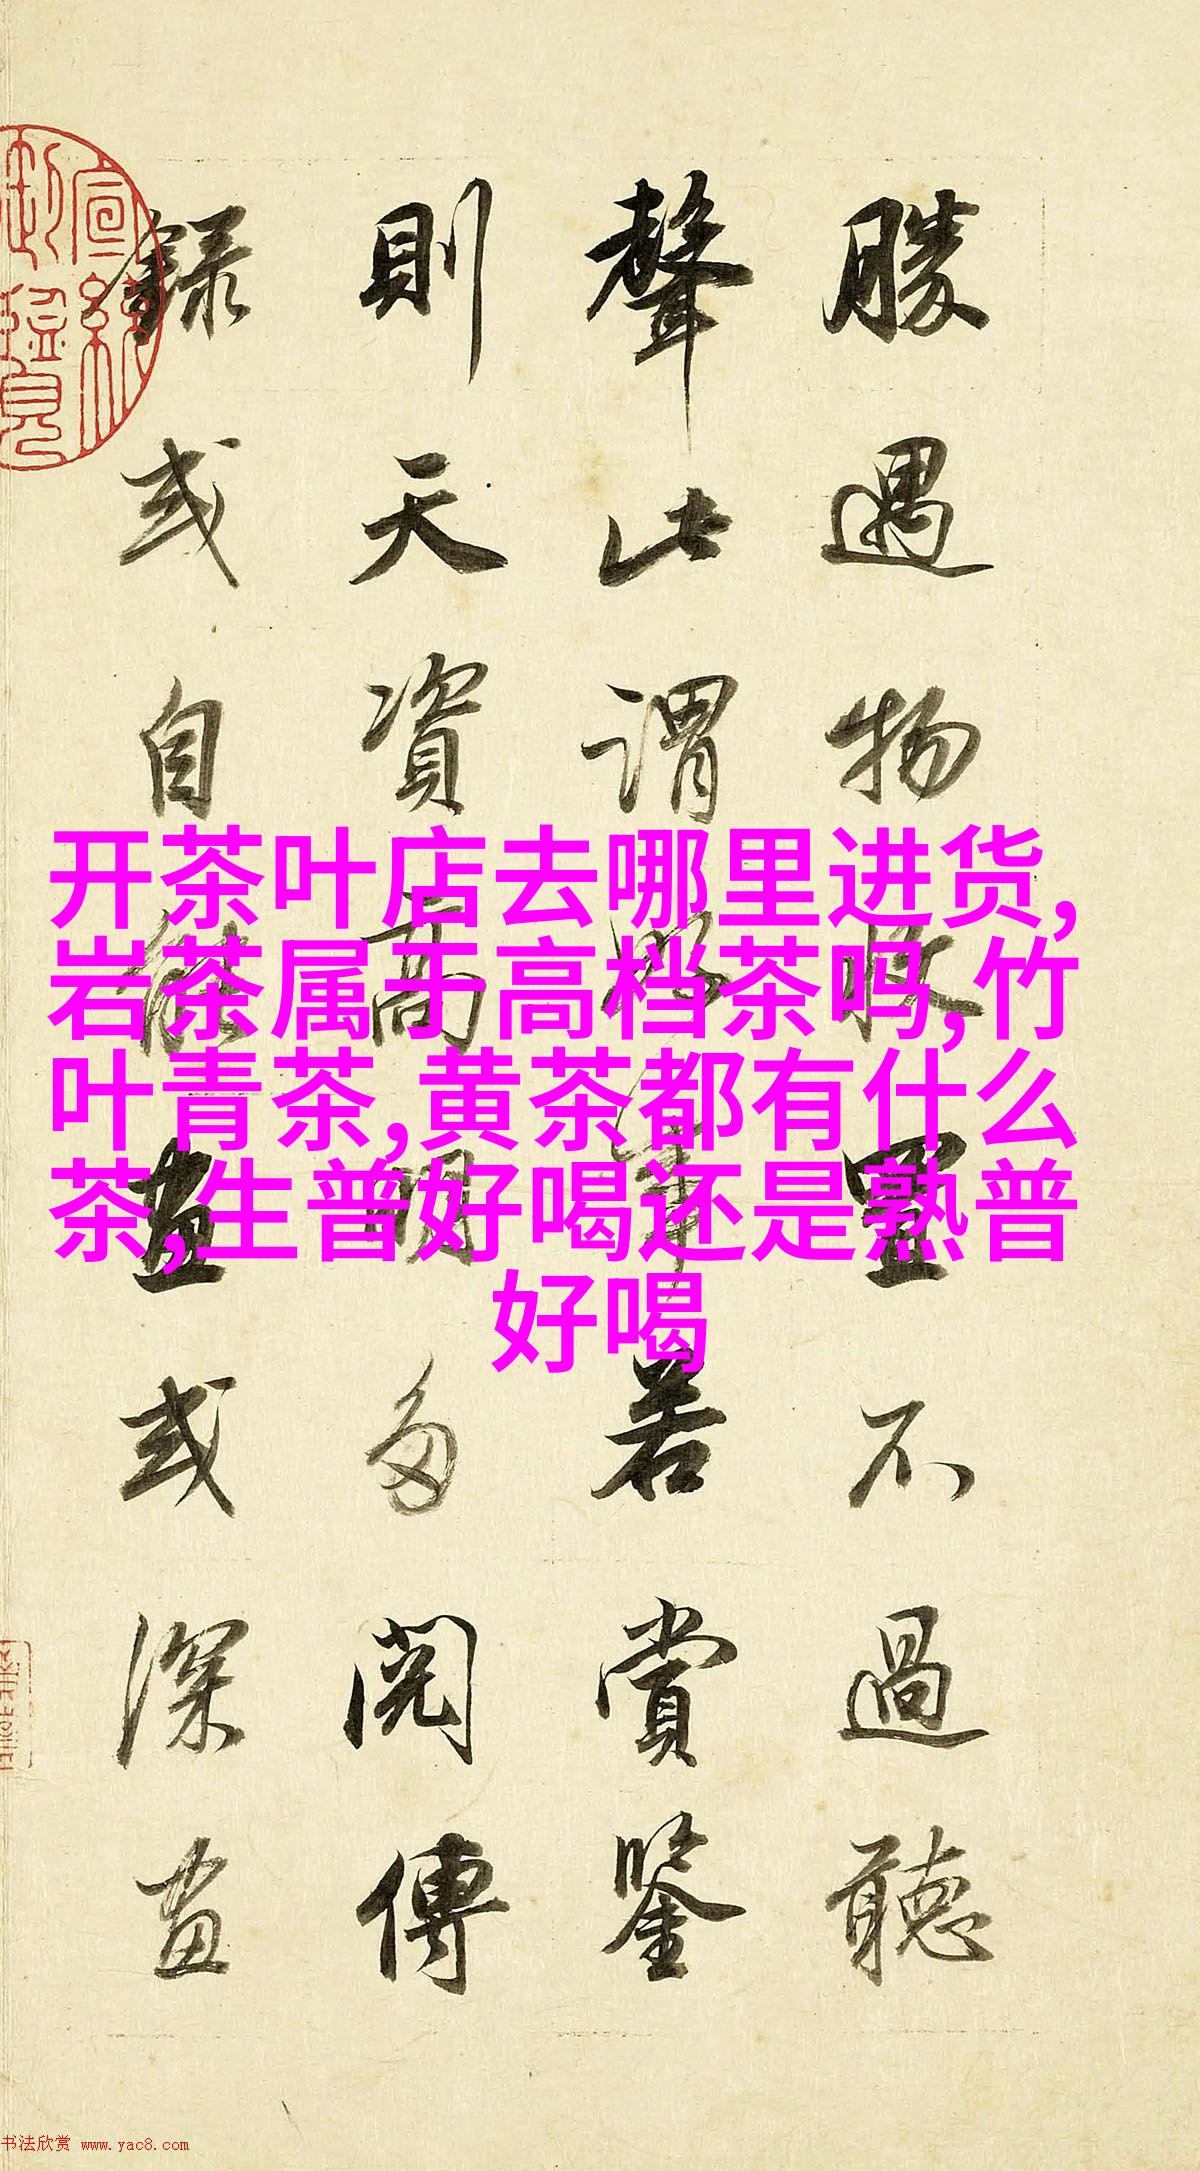 勝遇物收置不過聽
聲此謂好事若賞鑒
則天資高明多閱傳
錄或自能畫或深畫
宣統
御覽
开茶叶店去哪里进货,
岩茶属于高档茶吗,竹
叶青茶,黄茶都有什么
茶,生普好喝还是熟普
好喝
书法欣赏 www.yac8.com